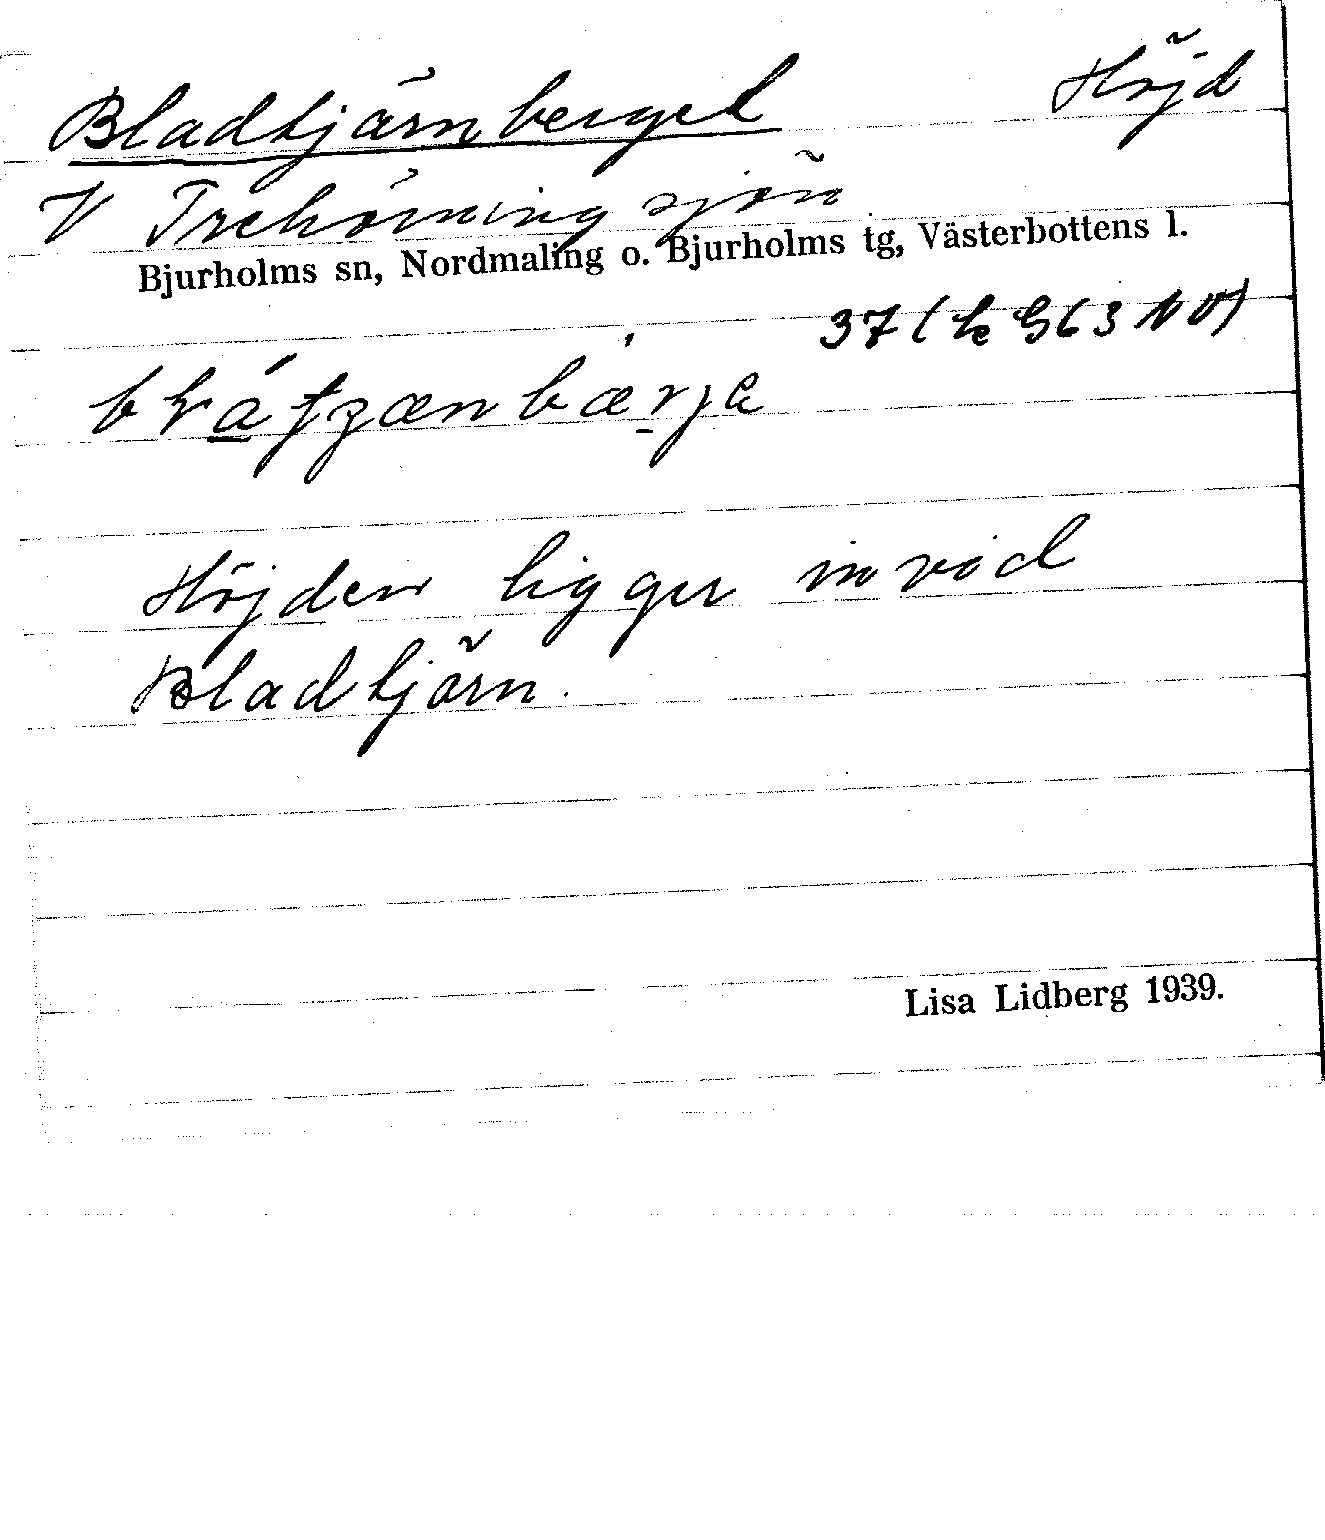 Bladtjärnberget Höjd
V Trehörningsjön
Bjurholms sn, Nordmaling o. Bjurholms tg, Västerbottens l.
37
Höjden ligger invid
Bladtjärn.
Lisa Lidberg 1939.